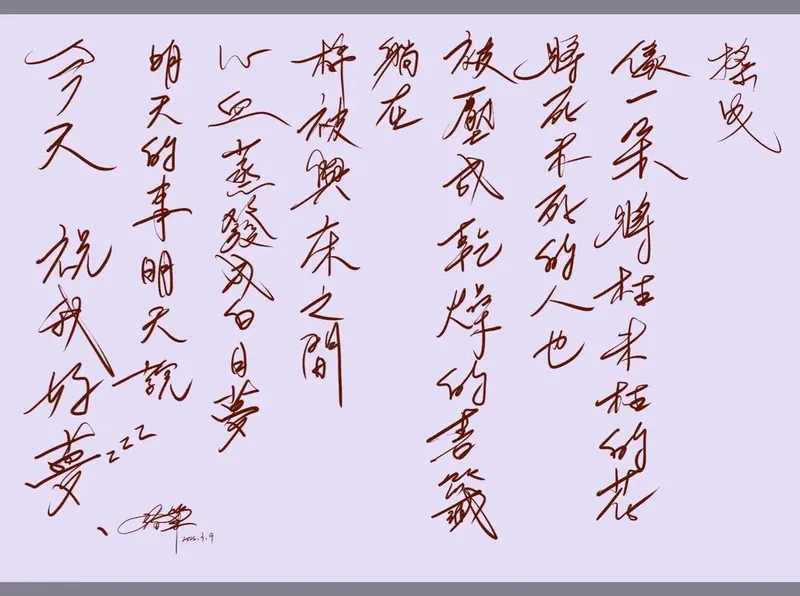 搖曳
像一朵將枯未枯的花
將死未死的人也
被壓成乾燥的書籤
躺在
棉被與床之間
心血蒸發成白日夢
明天的事明天說
今天 祝我好夢zzz